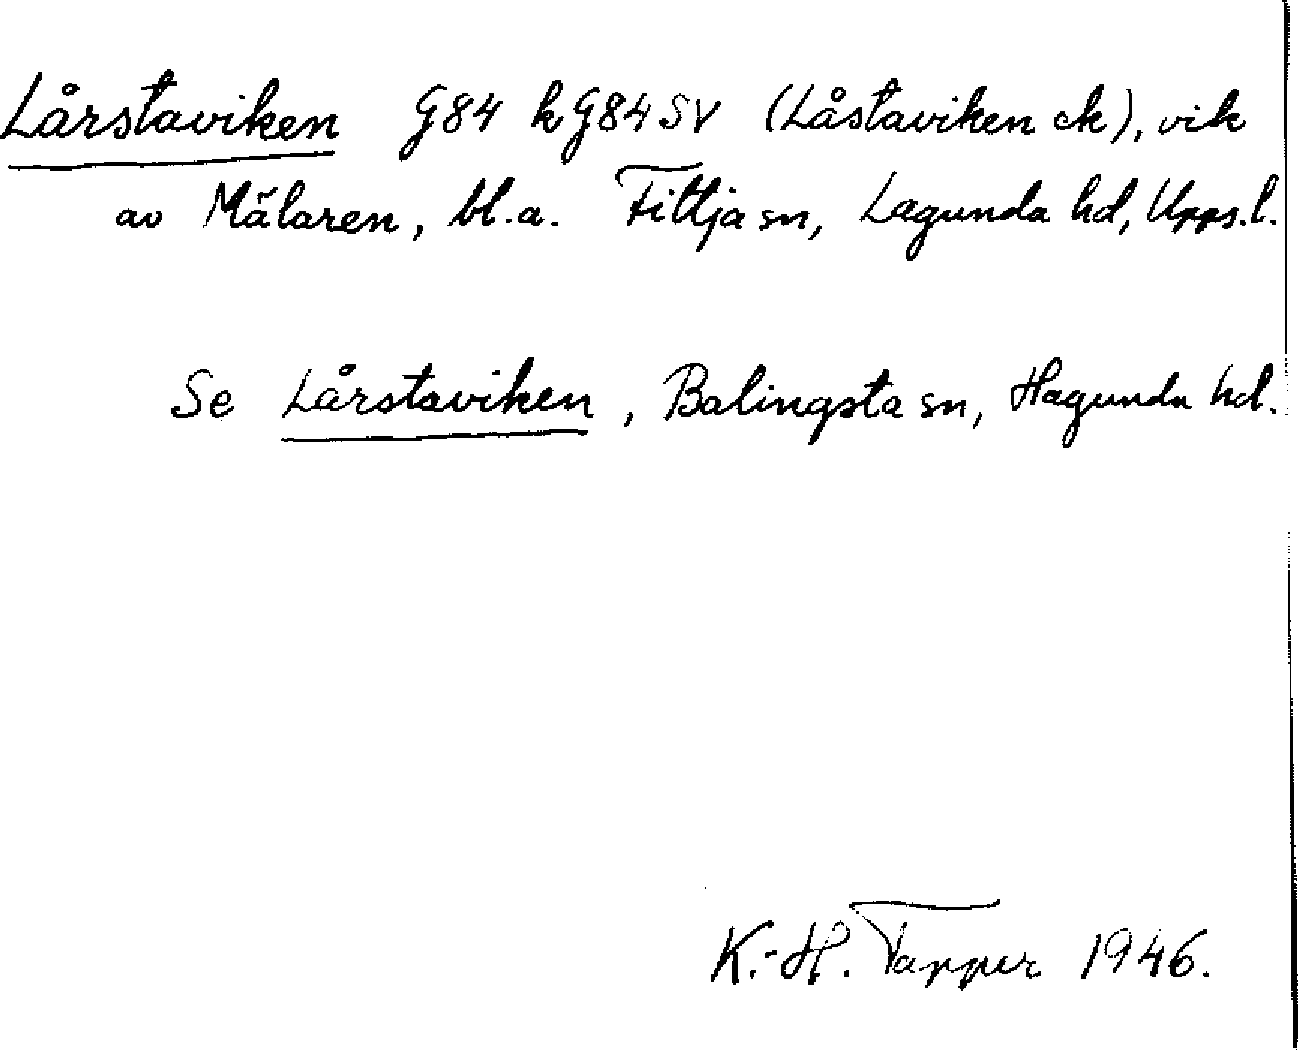 Lårstaviken G84 k G84 SV (Låstaviken ek), vik
av Mälaren, bl.a. Fittja sn, Lagunda hd, Upps.l.
Se Lårstaviken, Balingsta sn, Hagunda hd.
K.-H. Tapper 1946.